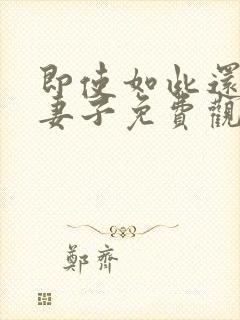 即使如此還
妻子免費觀
鄭齊